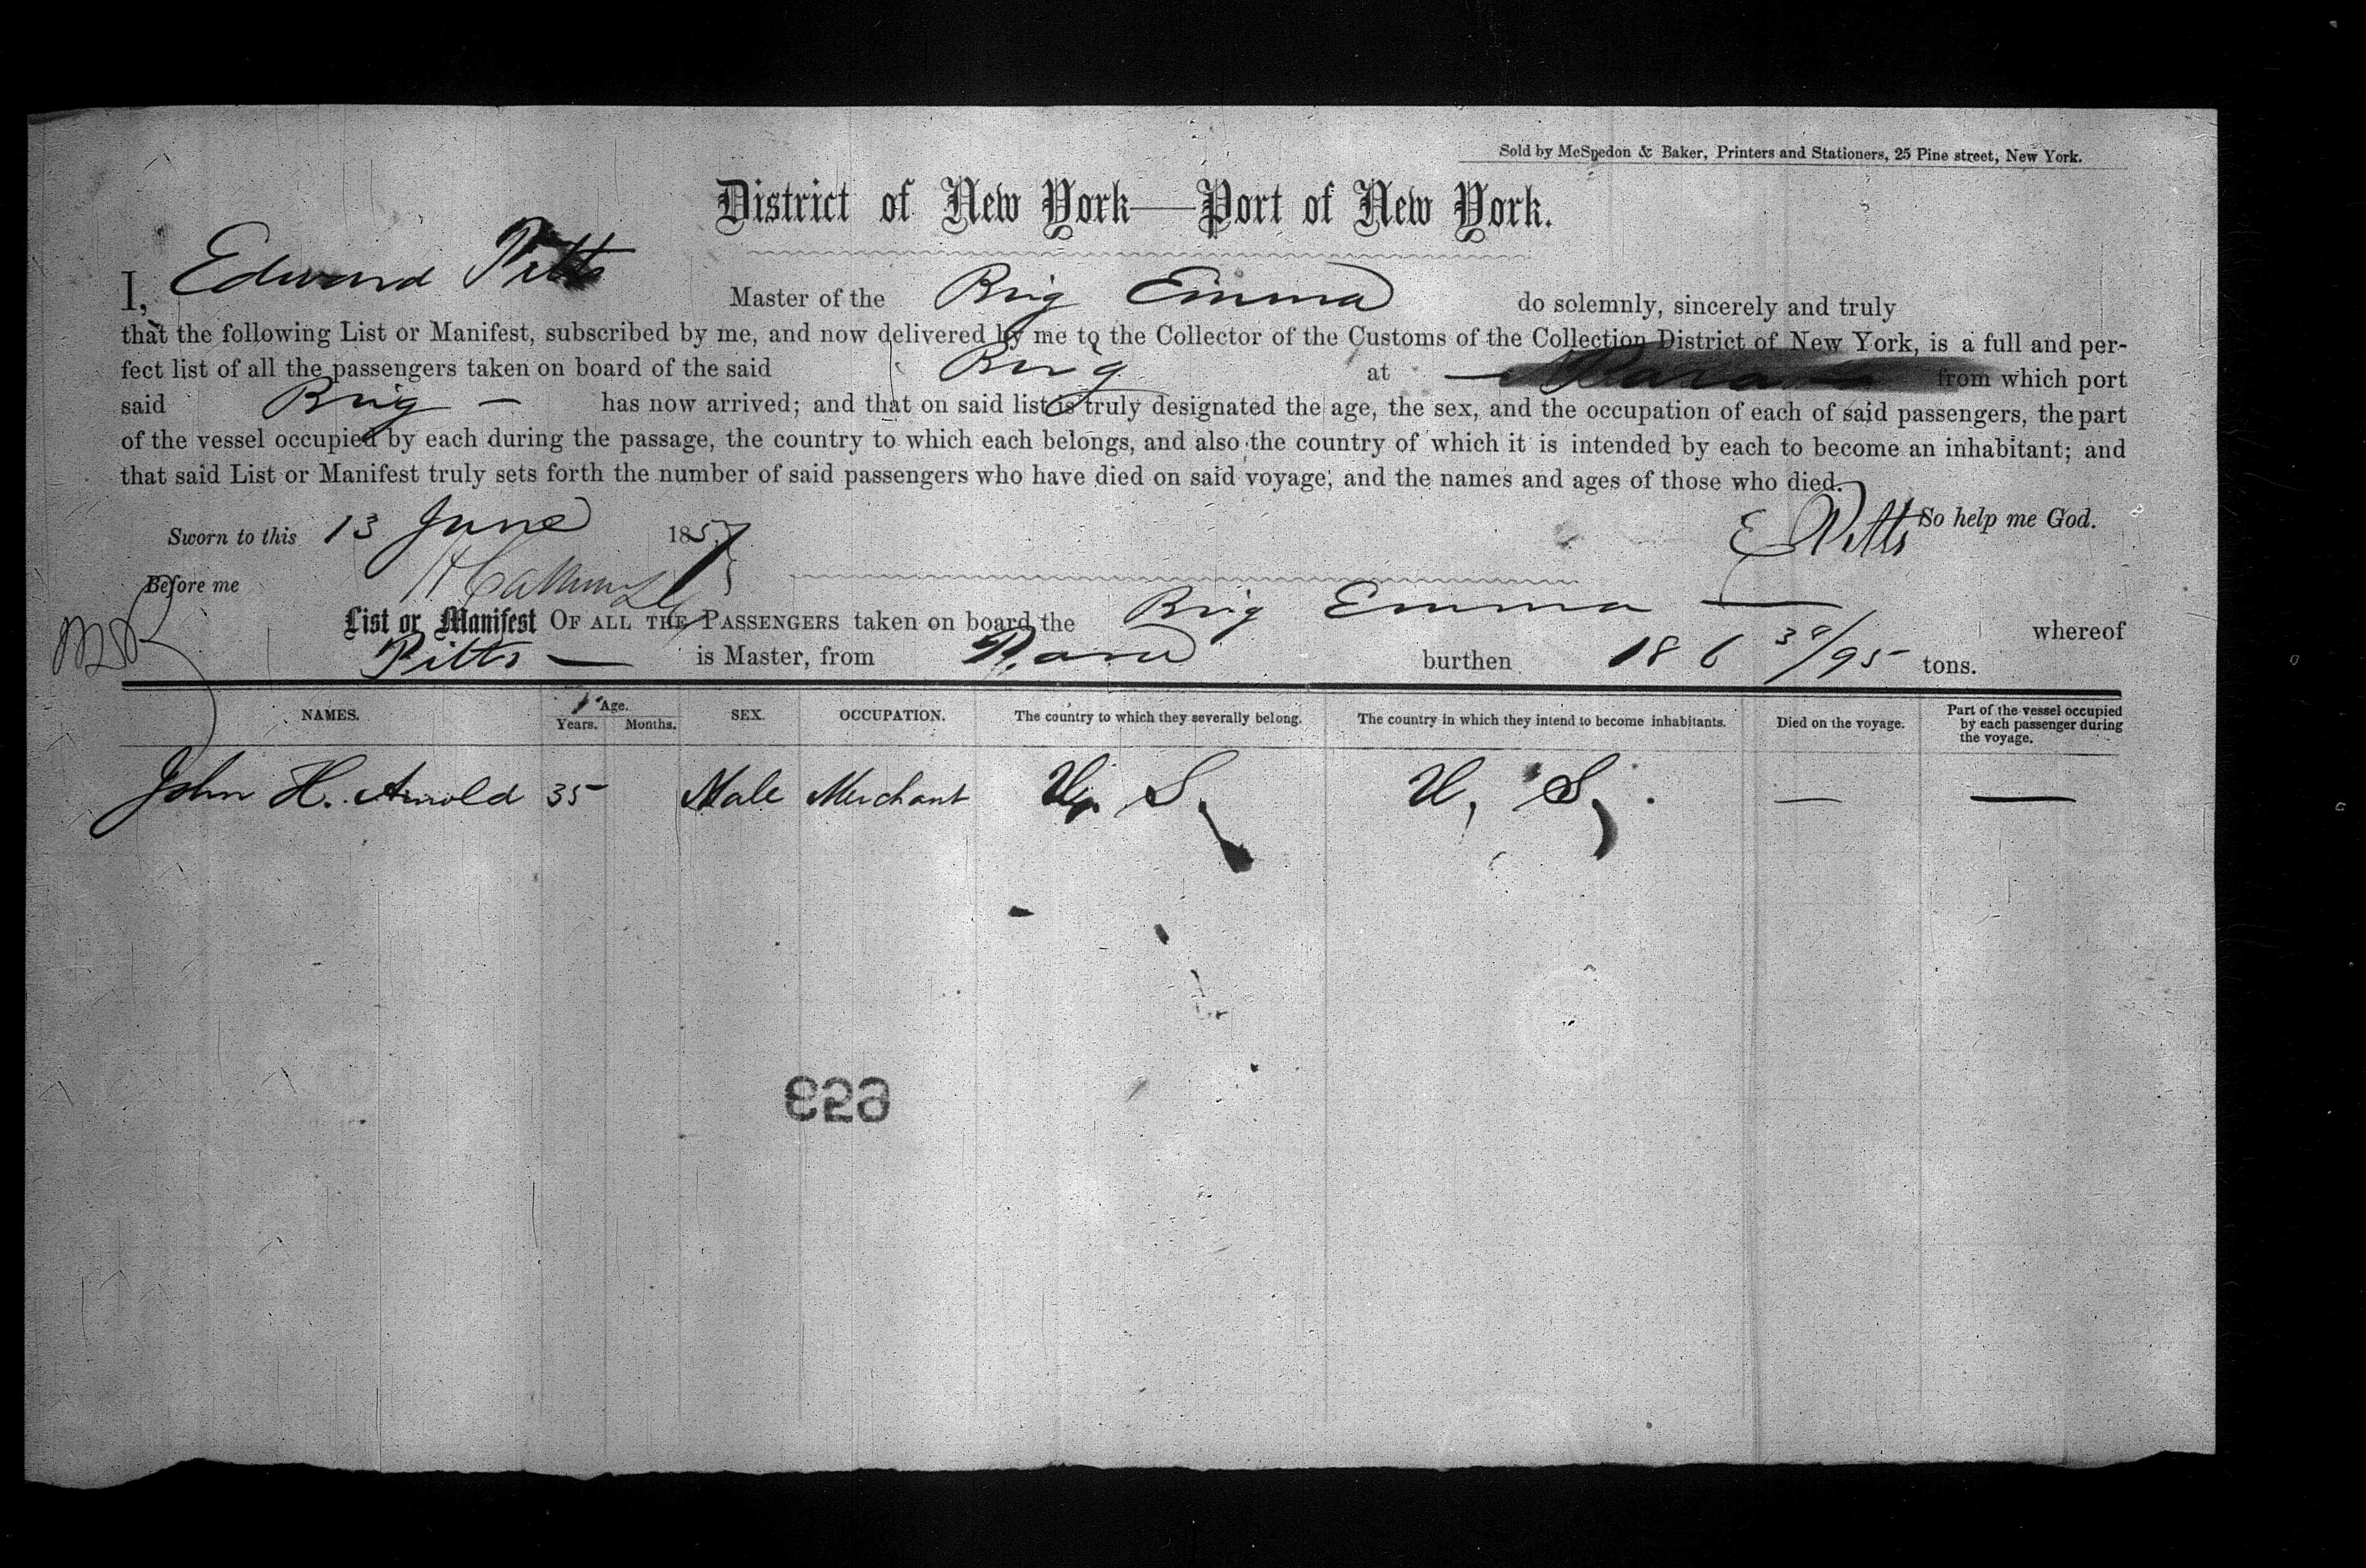 Sold by McSpedon & Baker, Printers and Stationers, 25 Pine street, New York.
District of New York—Port of New York.
I, Edward Pitts Master of the Brig Emma do solemnly, sincerely and truly
that the following List or Manifest, subscribed by me, and now delivered by me to the Collector of the Customs of the Collection District of New York, is a full and per-
fect list of all the passengers taken on board of the said Brig at Para from which port
said Brig — has now arrived; and that on said list is truly designated the age, the sex, and the occupation of each of said passengers, the part
of the vessel occupied by each during the passage, the country to which each belongs, and also the country of which it is intended by each to become an inhabitant; and
that said List or Manifest truly sets forth the number of said passengers who have died on said voyage, and the names and ages of those who died.
E Pitts So help me God.
Sworn to this 13 June 1857
Before me
List or Manifest OF ALL THE PASSENGERS taken on board the Brig Emma — whereof
Pitts — is Master, from Para burthen 186 38/95 tons.
NAMES. Age. Years. Months. SEX. OCCUPATION. The country to which they severally belong. The country in which they intend to become inhabitants. Died on the voyage. Part of the vessel occupied by each passenger during the voyage.
John H. Arnold 35 Male Merchant U. S. U, S, — —
659